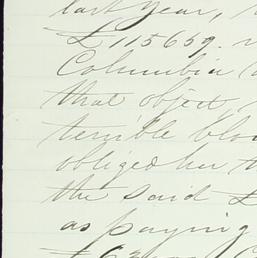 last year,
£115659.
Columbia
that object,
terrible blow
obliged her to
the said £
as paying